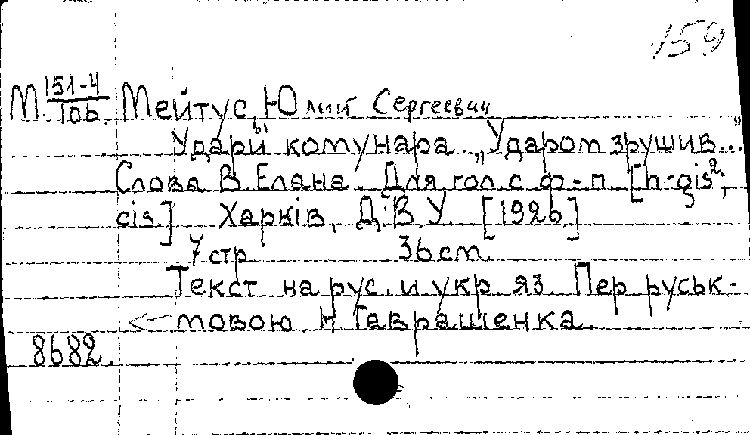 159
М 151-4/106. Мейтус, Юлий Сергеевич
Удари комунара. „Ударом зрушив..."
Слова В. Елана. Для гол. с ф-п. [h-gis²,
cis.] Харків, Д.В.У. [1926.]
7 стр. 36 cm.
Текст на рус. и укр. яз. Пер. руськ-
мовою Н. Гаврашенка.
8682.